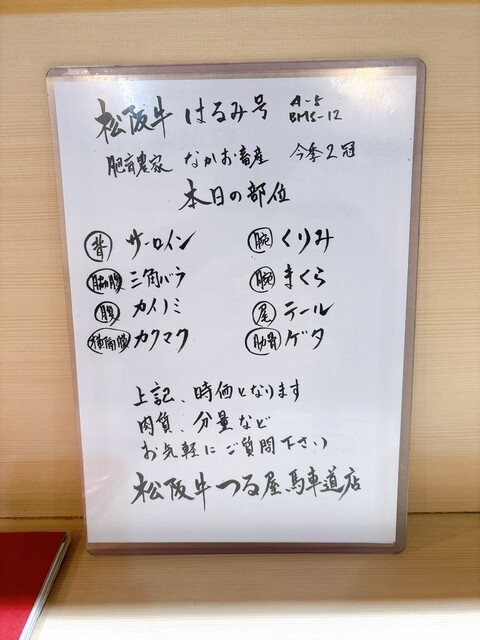 松阪牛 はるみ号 A-5 BMS-12
肥育農家 なかお畜産 今季2冠
本日の部位
背 サーロイン
脇腹 三角バラ
腹 カイノミ
横隔膜 カクマク
腕 くりみ
腕 まくら
尾 テール
肋骨 ゲタ
上記、時価となります
肉質、分量など
お気軽にご質問下さい
松阪牛つる屋馬車道店